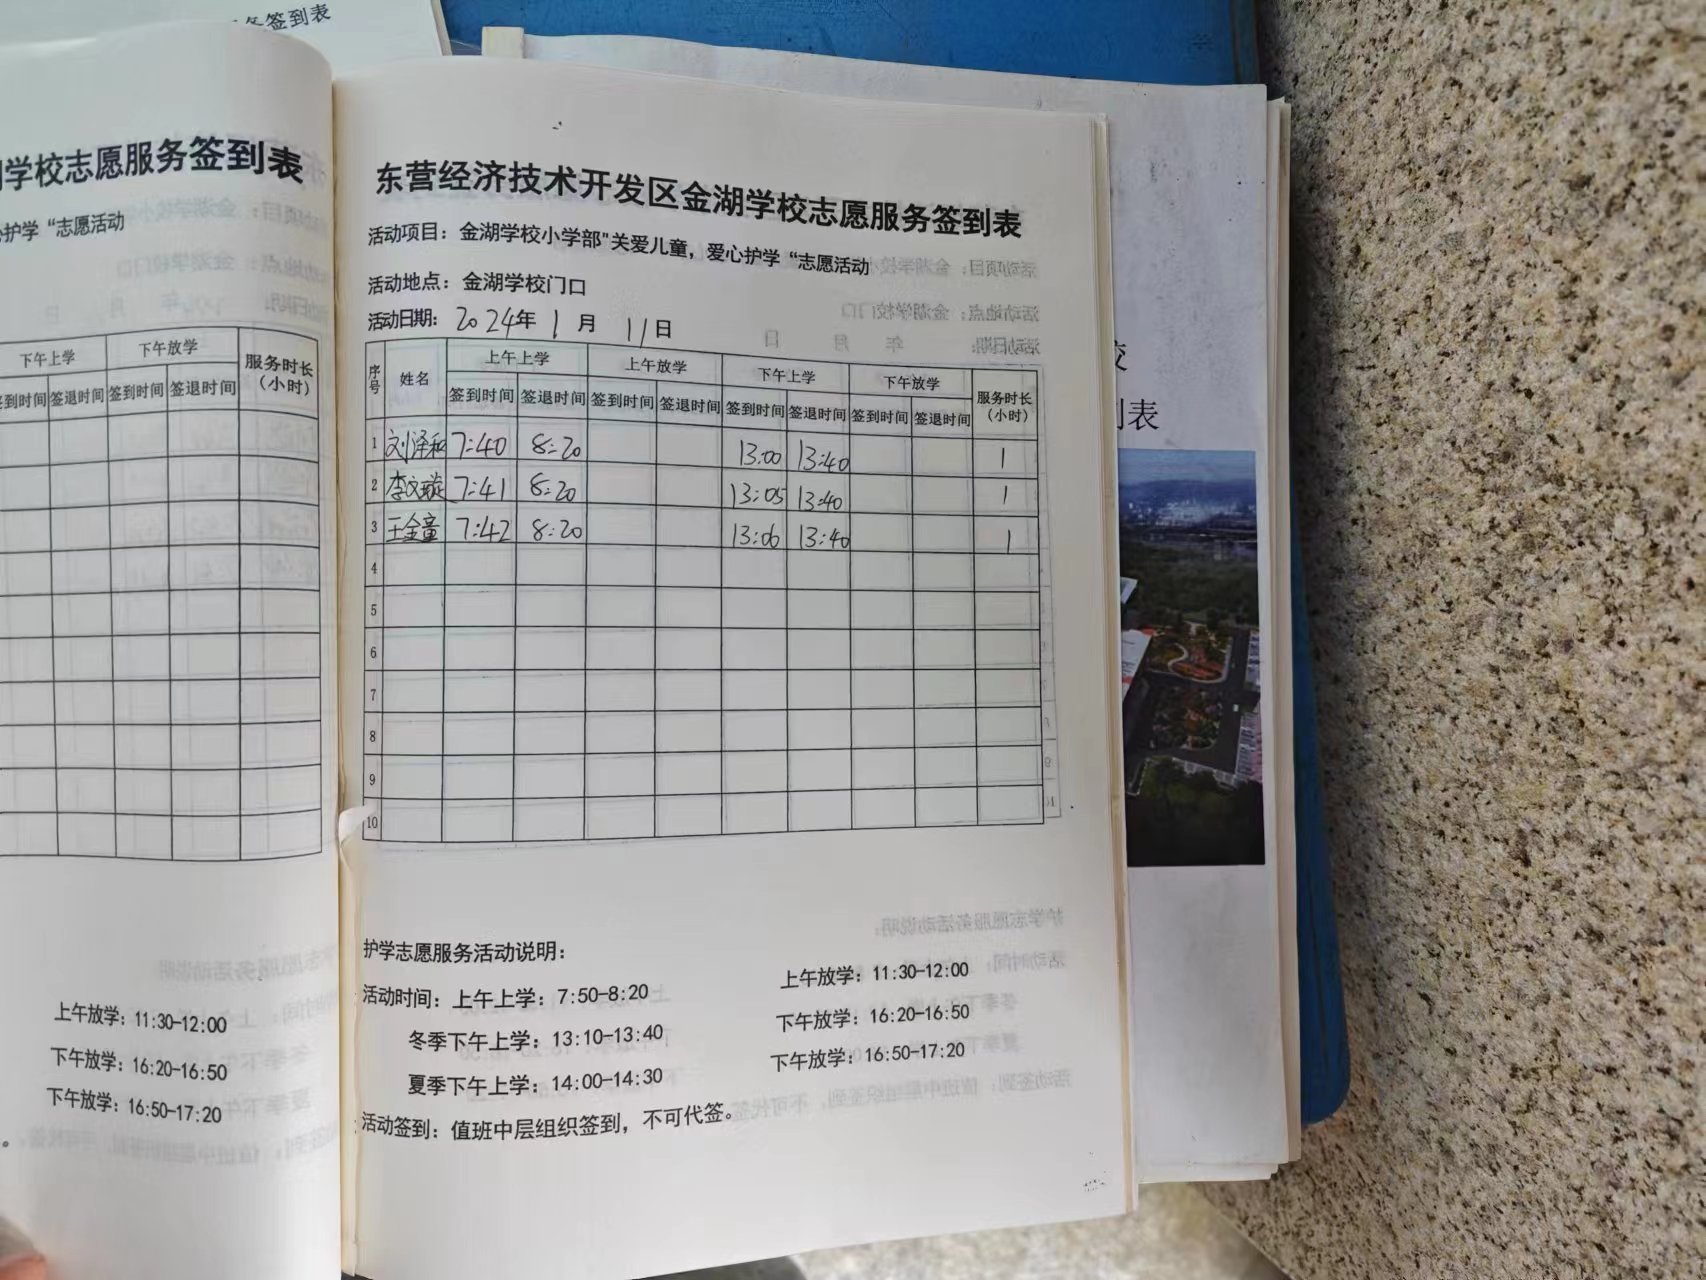 务签到表
学校志愿服务签到表
心护学 “志愿活动
下午上学 下午放学 服务时长（小时）
签到时间 签退时间 签到时间 签退时间
上午放学：11:30-12:00
下午放学：16:20-16:50
下午放学：16:50-17:20
。
东营经济技术开发区金湖学校志愿服务签到表
活动项目：金湖学校小学部"关爱儿童，爱心护学 “志愿活动
活动地点：金湖学校门口
活动日期：2024年 1 月 11日
序号 姓名 上午上学 上午放学 下午上学 下午放学 服务时长（小时）
签到时间 签退时间 签到时间 签退时间 签到时间 签退时间 签到时间 签退时间
1 刘泽和 7:40 8:20 13:00 13:40 1
2 李文璇 7:41 8:20 13:05 13:40 1
3 王金童 7:42 8:20 13:06 13:40 1
4
5
6
7
8
9
10
护学志愿服务活动说明：
活动时间：上午上学：7:50-8:20 上午放学：11:30-12:00
冬季下午上学：13:10-13:40 下午放学：16:20-16:50
夏季下午上学：14:00-14:30 下午放学：16:50-17:20
活动签到：值班中层组织签到，不可代签。
到表